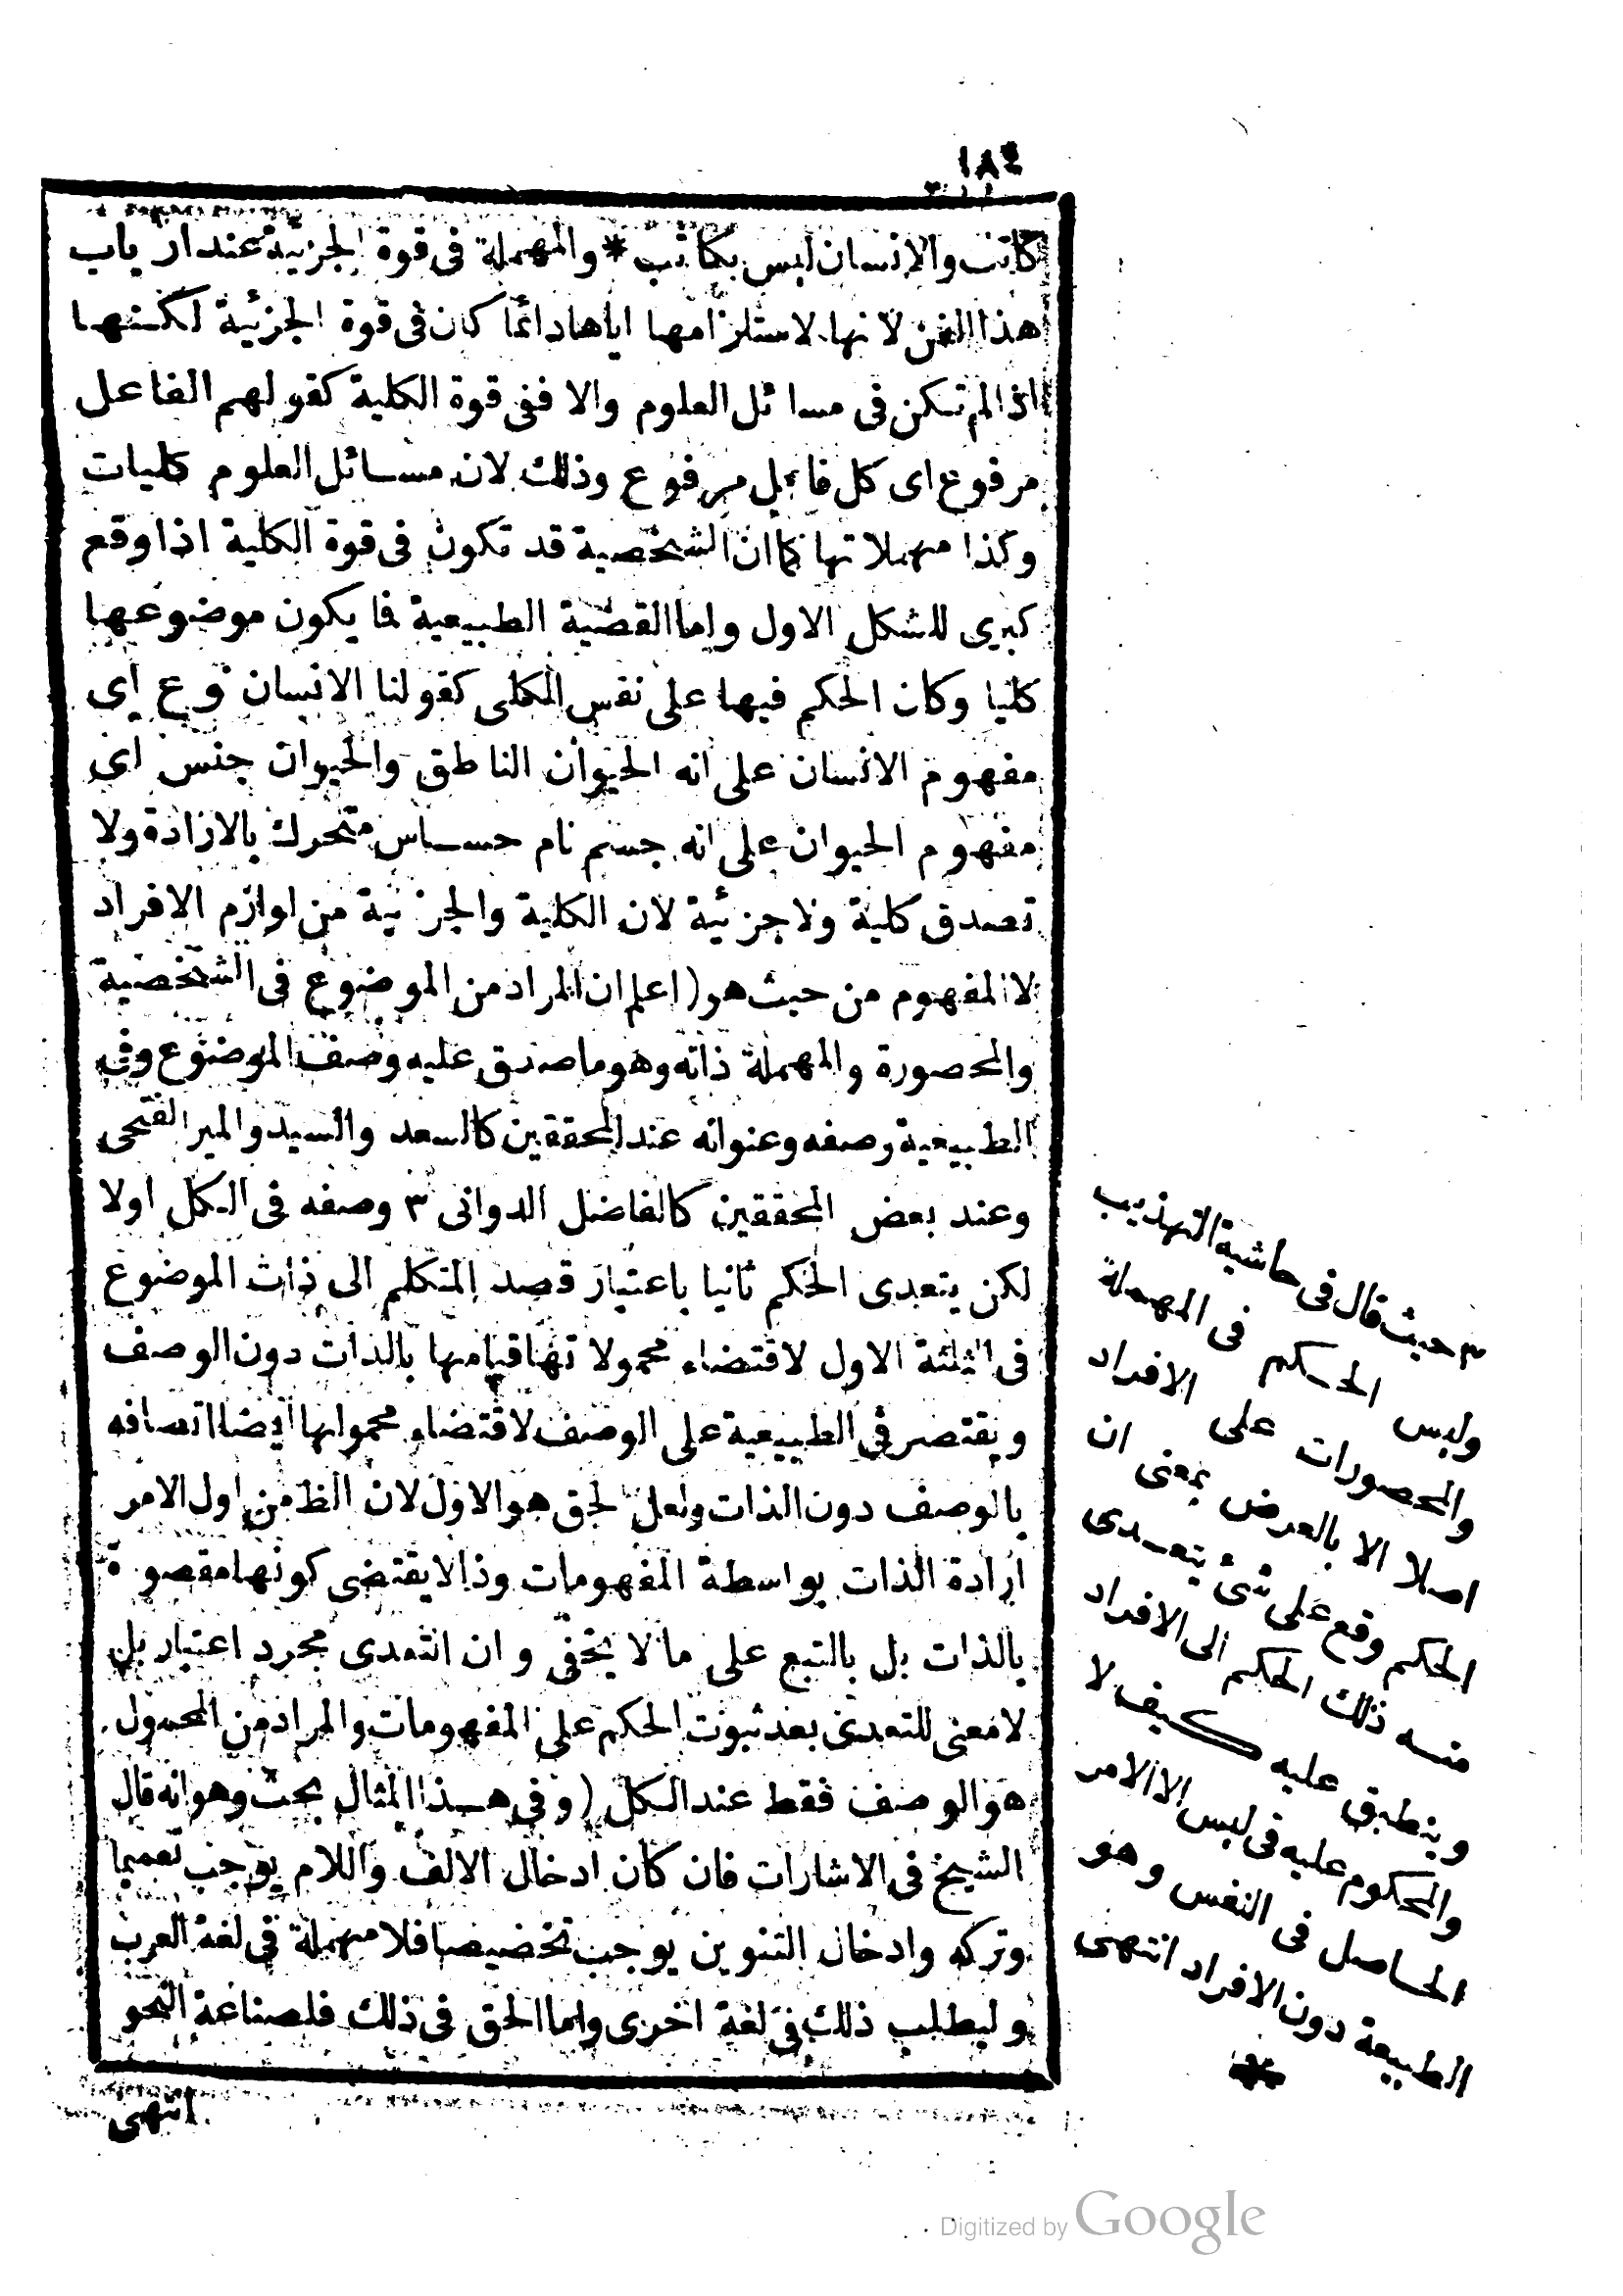 ١٨٤
كاتب والانسان ليس بكاتب * والمهملة فى قوة الجزئية عند ارباب
هذا الفن لانها لاستلزامها اياها دائما كان فى قوة الجزئية لكنها
اذا لم تكن فى مسائل العلوم والا ففى قوة الكلية كقولهم الفاعل
مرفوع اى كل فاعل مرفوع وذلك لان مسائل العلوم كليات
وكذا مهملاتها كما ان الشخصية قد تكون فى قوة الكلية اذا وقع
كبرى للشكل الاول واما القضية الطبيعية فما يكون موضوعها
كليا وكان الحكم فيها على نفس الكلى كقولنا الانسان نوع اى
مفهوم الانسان على انه الحيوان الناطق والحيوان جنس اى
مفهوم الحيوان على انه جسم نام حساس متحرك بالارادة ولا
تصدق كلية ولا جزئية لان الكلية والجزئية من لوازم الافراد
لا المفهوم من حيث هو ( اعلم ان المراد من الموضوع فى الشخصية
والمحصورة والمهملة ذاته وهو ما صدق عليه وصف الموضوع وفى
الطبيعية وصفه وعنوانه عند المحققين كالسعد والسيد والمير الفتحى
وعند بعض المحققين كالفاضل الدوانى ٣ وصفه فى الكل اولا
لكن يتعدى الحكم ثانيا باعتبار قصد المتكلم الى ذات الموضوع
فى الثلثة الاول لاقتضاء محمولاتها قيامها بالذات دون الوصف
ويقتصر فى الطبيعية على الوصف لاقتضاء محمولها ايضا اتصافه
بالوصف دون الذات ولعل الحق هو الاول لان الظ من اول الامر
ارادة الذات بواسطة المفهومات وذا لا يقتضى كونها مقصو ة
بالذات بل بالتبع على ما لا يخفى وان التعدى مجرد اعتبار بل
لا معنى للتعدى بعد ثبوت الحكم على المفهومات والمراد من المحمول
هو الوصف فقط عند الكل ( وفى هذا المثال بحث وهو انه قال
الشيخ فى الاشارات فان كان ادخال الالف واللام يوجب تعميما
وتركه وادخال التنوين يوجب تخصيصا فلا مهملة فى لغة العرب
وليطلب ذلك فى لغة اخرى واما الحق فى ذلك فلصناعة النحو
انتهى
٣ حيث قال فى حاشية التهذيب
وليس الحكم فى المهملة
والمحصورات على الافراد
اصلا الا بالعرض بمعنى ان
الحكم وقع على شئ يتعدى
منه ذلك الحكم الى الافراد
وينطبق عليه كيف لا
والمحكوم عليه فى ليس الا الامر
الحاصل فى النفس وهو
الطبيعة دون الافراد انتهى
*
Digitized by Google